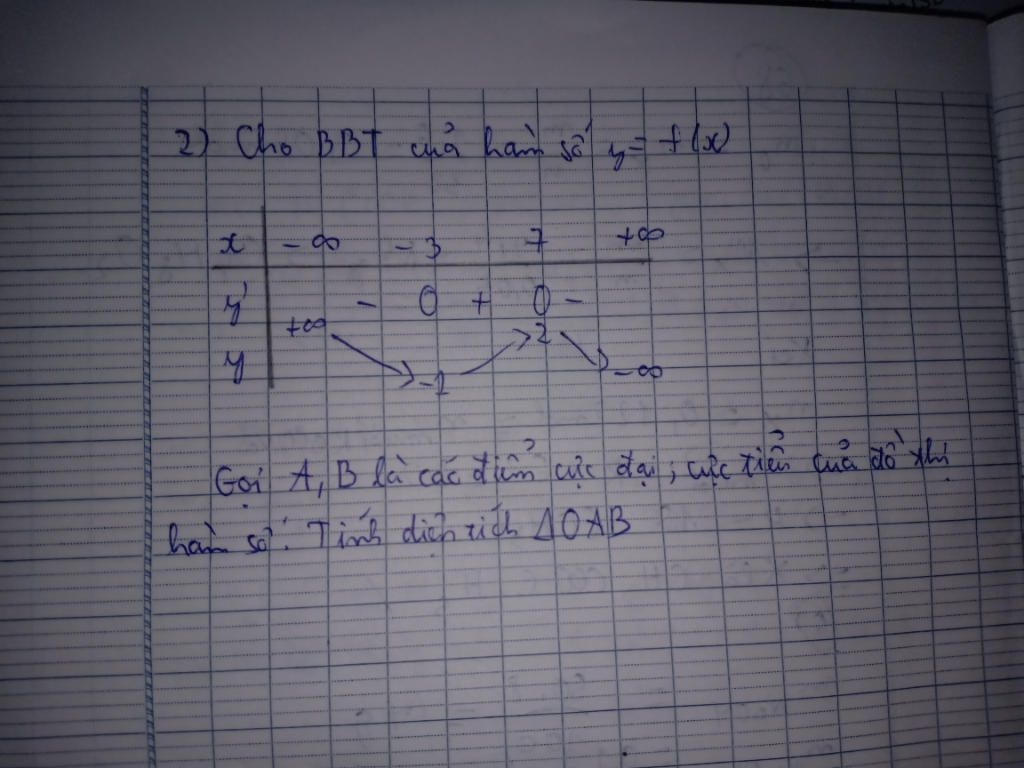 2) Cho BBT của hàm số y = f(x)
x -∞ -3 7 +∞
y' - 0 + 0 -
+∞ 2
y -1 -∞
Gọi A, B là các điểm cực đại, cực tiểu của đồ thị
hàm số. Tính diện tích ΔOAB